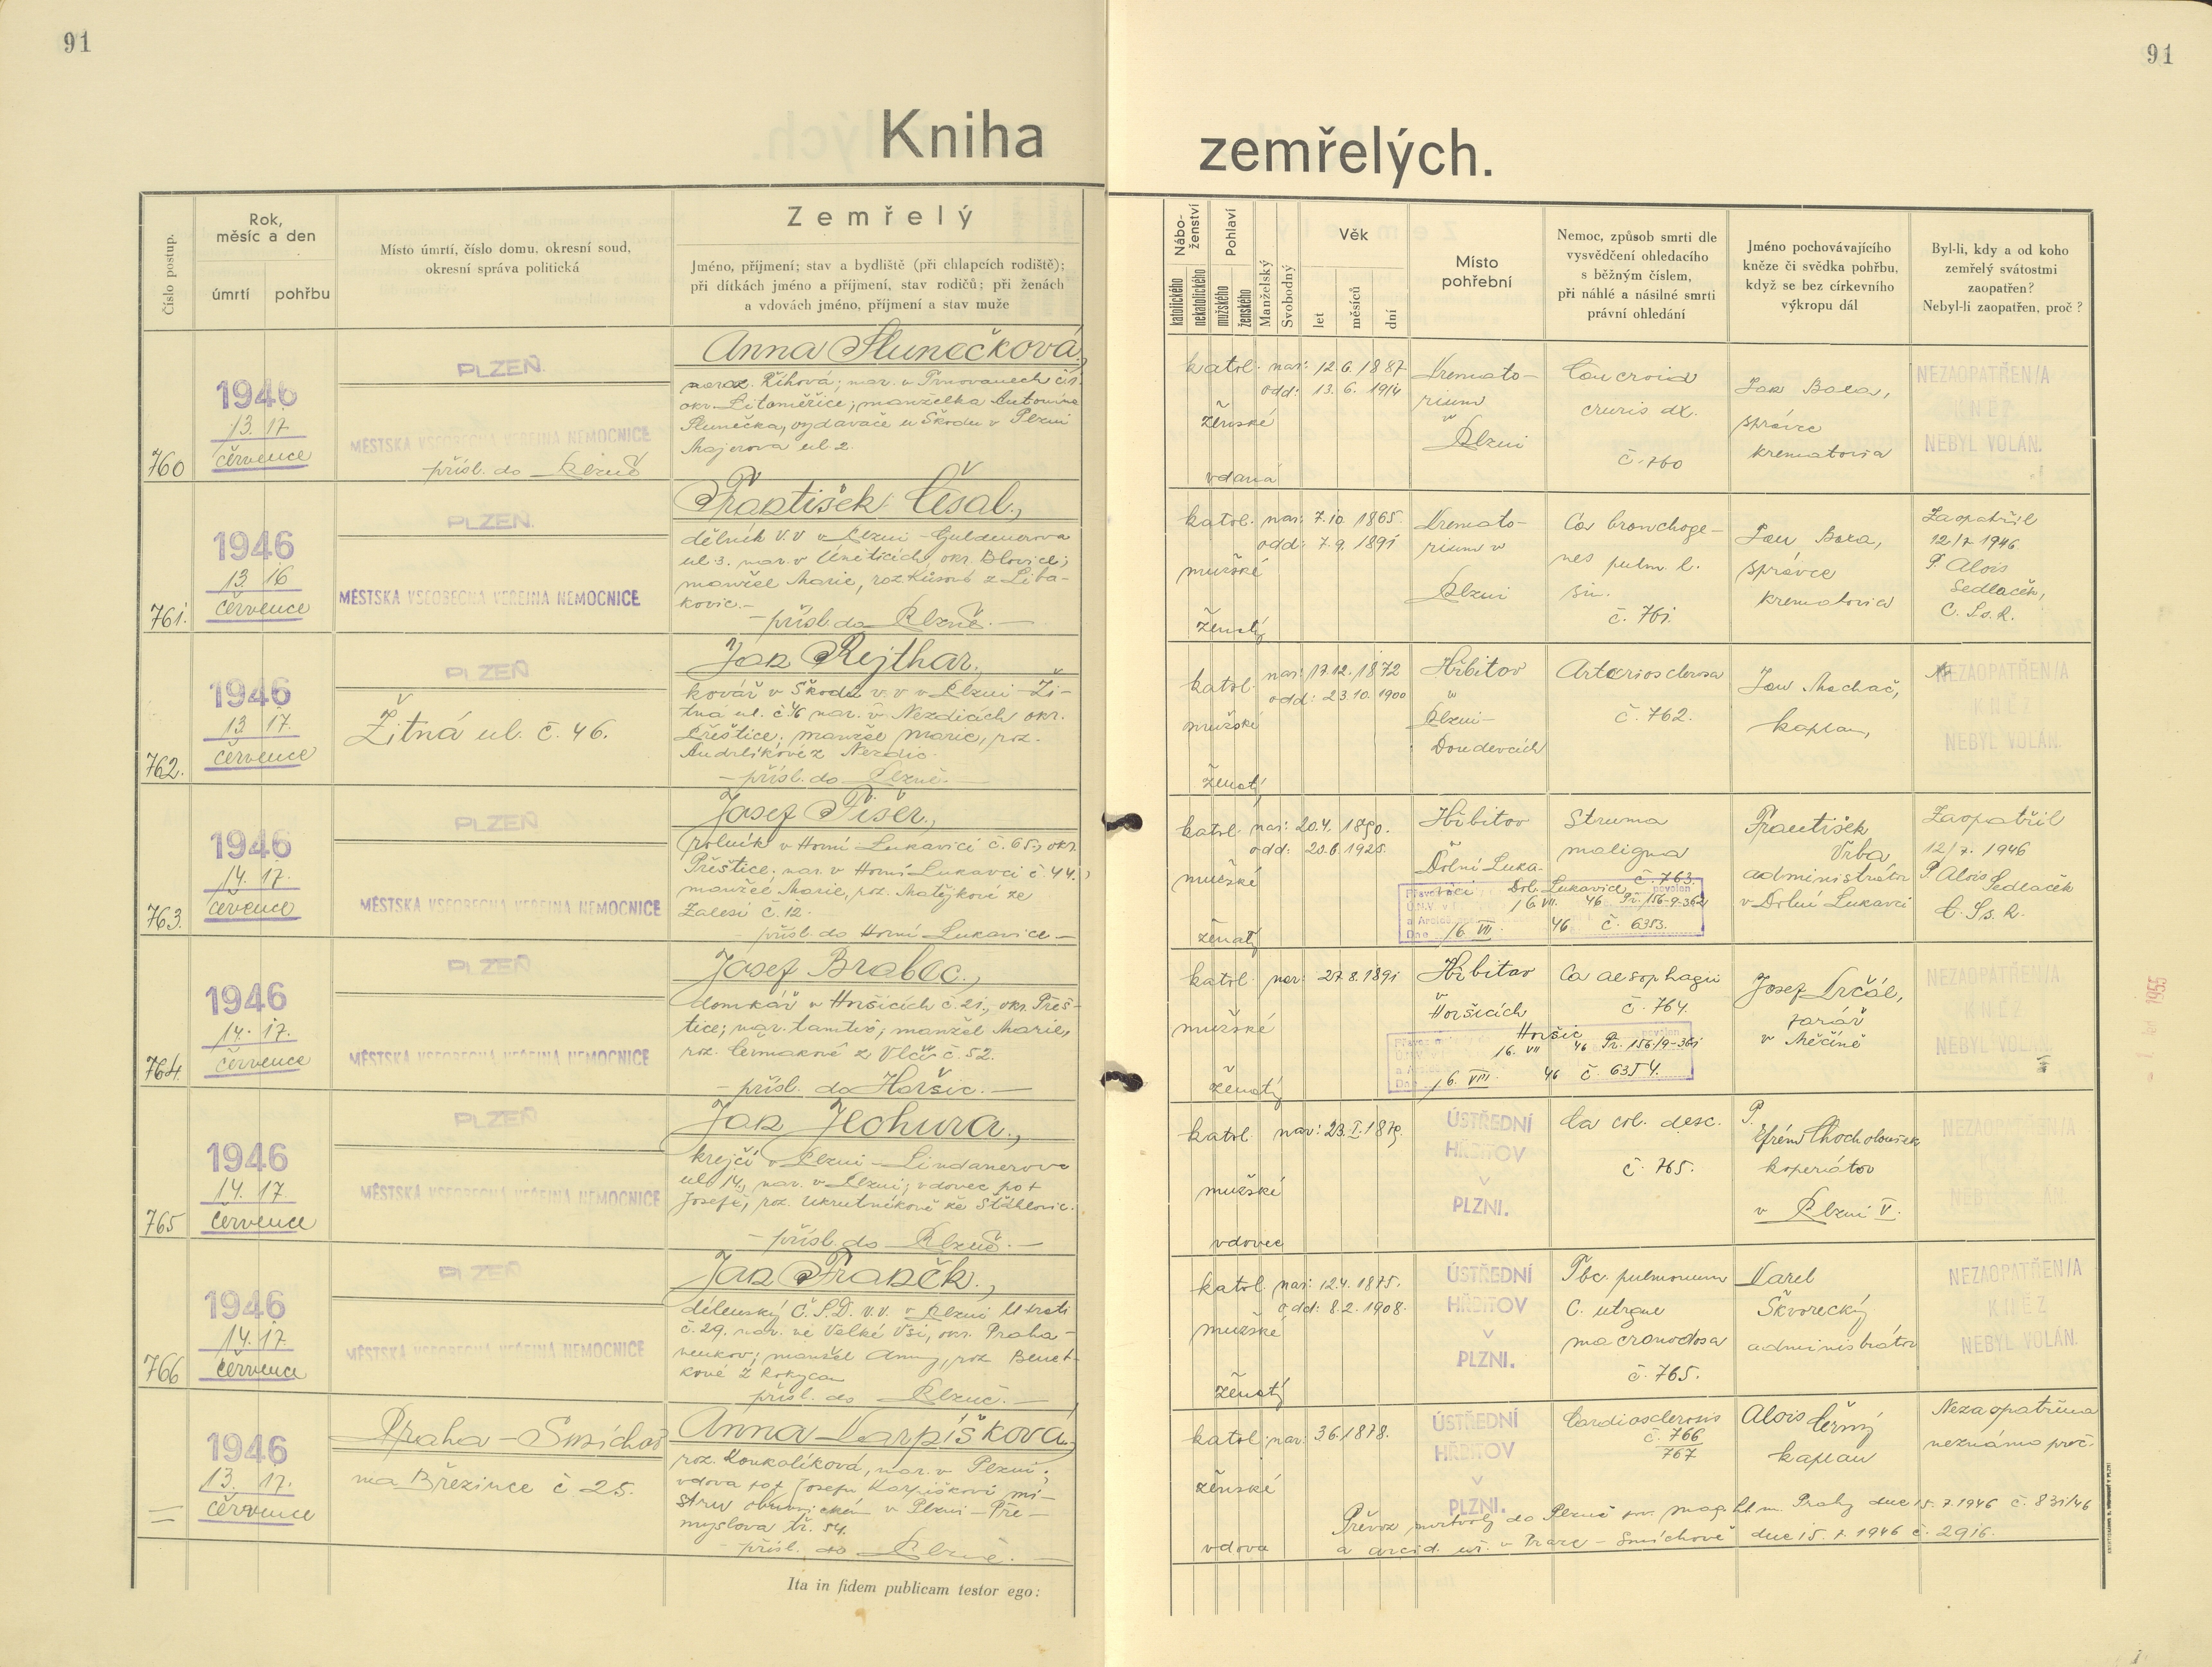 91
91
Kniha zemřelých.
Číslo postup.
Rok, měsíc a den
úmrtí
pohřbu
Místo úmrtí, číslo domu, okresní soud,
okresní správa politická
Zemřelý
Jméno, příjmení; stav a bydliště (při chlapcích rodiště);
při dítkách jméno a příjmení, stav rodičů; při ženách
a vdovách jméno, příjmení a stav muže
Nábo-
ženství
katolického
nekatolického
Pohlaví
mužského
ženského
Manželský
Svobodný
Věk
let
měsíců
dní
Místo
pohřební
Nemoc, způsob smrti dle
vysvědčení ohledacího
s běžným číslem,
při náhlé a násilné smrti
právní ohledání
Jméno pochovávajícího
kněze či svědka pohřbu,
když se bez církevního
výkropu dál
Byl-li, kdy a od koho
zemřelý svátostmi
zaopatřen?
Nebyl-li zaopatřen, proč?
760
1946
13. 17.
července
PLZEŇ
MĚSTSKÁ VŠEOBECNÁ VEŘEJNÁ NEMOCNICE
přísl. do Plzně
Anna Slunečková,
naroz. Říhová; nar. v Trnovanech čís.
okr. Litoměřice; manželka Antonína
Slunečka, vydavače u Škodů v Plzni
Majerova ul. 2.
katol.
ženské
vdaná
nar: 12 6. 1887
odd: 13. 6. 1914
Kremato-
rium
v
Plzni
Cancroid
cruris dx.
č. 760
Jan Baxa,
správce
krematoria
NEZAOPATŘEN/A
KNĚZ
NEBYL VOLÁN.
761.
1946
13. 16
července
PLZEŇ
MĚSTSKÁ VŠEOBECNÁ VEŘEJNÁ NEMOCNICE
František Česal,
dělník v.v v Plzni - Guldenerova
ul. 3. nar. v Úneticích, okr. Blovice;
manžel Marie, roz. Kůsové z Liba-
kovic.-
- přísl. do Plzně. -
katol.
mužské
ženatý
nar: 7. 10. 1865.
odd: 7. 9. 1891
Kremato-
rium v
Plzni
Ca bronchoge-
nes pulm. l.
sin.
č. 761.
Jan Baxa,
správce
krematoria
Zaopatřil
12/7 1946
P. Alois
Sedlaček,
C. Ss. R.
762.
1946
13 17.
července
PLZEŇ
Žitná ul. č. 46.
Jan Rejthar,
kovář v Škodů v. v v Plzni - Ži-
tná ul. č. 46 nar. v Nezdicích okr.
Přeštice; manžel Marie, roz.
Andrlíkové z Nezdic.
- přísl. do Plzně. -
katol.
mužské
ženatý
nar: 17. 12. 1872
odd: 23. 10. 1900
Hřbitov
v
Plzni-
Doudevcích
Arteriosclerosa
č. 762.
Jan Machač,
kaplan,
NEZAOPATŘEN/A
KNĚZ
NEBYL VOLÁN.
763.
1946
14. 17.
července
PLZEŇ
MĚSTSKÁ VŠEOBECNÁ VEŘEJNÁ NEMOCNICE
Josef Fišer,
rolník v Horní Lukavici č. 65, okr.
Přeštice; nar. v Horní Lukavci č. 44.,
manžel Marie, roz. Matějkové ze
Zálesí č. 12.
- přísl. do Horní Lukavice. -
katol.
mužské
ženatý
nar: 20. 4. 1890.
odd: 20. 6 1925.
Hřbitov
v
Dolní Luka-
vici
Struma
maligna
č. 763.
Dol. Lukavice povolen
16. VII. 46 Pr. 156-9-362
Dne 16. VII. 46 č. 6353.
František
Vrba,
administrátor
v Dolní Lukavci
Zaopatřil
12/7. 1946
P. Alois Sedlaček
C. Ss. R.
764.
1946
14. 17.
července
PLZEŇ
MĚSTSKÁ VŠEOBECNÁ VEŘEJNÁ NEMOCNICE
Josef Brabec,
domkář v Horšicích č. 21., okr. Přeš-
tice; nar. tamtéž; manžel Marie,
roz. Čermákové z Vlčí č. 52.
- přísl. do Horšic. -
katol.
mužské
ženatý
nar: 27. 8. 1891
Hřbitov
v
Horšicích
Ca aesophagii
č. 764.
Horšic povolen
16. VII 46 Pr. 156/9-361
Dne 16. VII. 46 č. 6354.
Josef Krčál,
farář
v Měčíně
NEZAOPATŘEN/A
KNĚZ
NEBYL VOLÁN.
1955
765
1946
14. 17.
července
PLZEŇ
MĚSTSKÁ VŠEOBECNÁ VEŘEJNÁ NEMOCNICE
Jan Jechura,
krejčí v Plzni - Lindauerova
ul. 14., nar. v Plzni; vdovec po †
Josefě, roz. Ukrutníkové ze Stáhlovic.
- přísl. do Plzně. -
katol.
mužské
vdovec
nar: 23. I. 1879.
ÚSTŘEDNÍ
HŘBITOV
V
PLZNI.
Ca col. desc.
č. 765.
P.
Efrém Chocholoušek
koperátor
v Plzni V.
NEZAOPATŘEN/A
766
1946
14. 17.
července
PLZEŇ
MĚSTSKÁ VŠEOBECNÁ VEŘEJNÁ NEMOCNICE
Jan Franěk,
dělenský Č.S.D. v.v. v Plzni Úhrati
č. 29. nar. ve Velké Vsi, okr. Praha-
venkov; manžel Anny, roz Benet-
kové z Rokycan
přísl. do Plzně. -
katol.
mužské
ženatý
nar: 12. 4. 1875.
odd: 8. 2. 1908.
ÚSTŘEDNÍ
HŘBITOV
V
PLZNI.
Tbc. pulmonum
C. utrque
macronodosa
č. 765.
Karel
Škvorecký
administrátor
NEZAOPATŘEN/A
KNĚZ
NEBYL VOLÁN.
1946
13. 17.
července
Praha - Smíchov
na Březince č 25.
Anna Karpíšková,
roz. Koukolíková, nar. v Plzni;
vdova po † Josefu Karpíškovi mi-
stru obuvnickém v Plzni - Pře-
myslova tř. 54.
- přísl. do Plzně. -
katol.
ženské
vdova
nar: 3 6. 1878.
ÚSTŘEDNÍ
HŘBITOV
V
PLZNI.
Cardiosclerosis
č. 766
767
Alois Černý
kaplan
Nezaopatřena
neznámo proč.
Převoz mrtvoly do Plzně pov. mag. hl. m. Prahy dne 15. 7. 1946 č. 831/46
a arcid. úř. v Praze - Smíchově dne 15. 7. 1946 č. 2916.
Ita in fidem publicam testor ego: